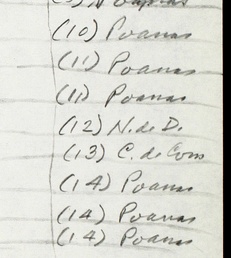 (10) Poanas
(11) Poanas
(11) Poanas
(12) N. de D.
(13) C. de Com
(14) Poanas
(14) Poanas
(14) Poanas